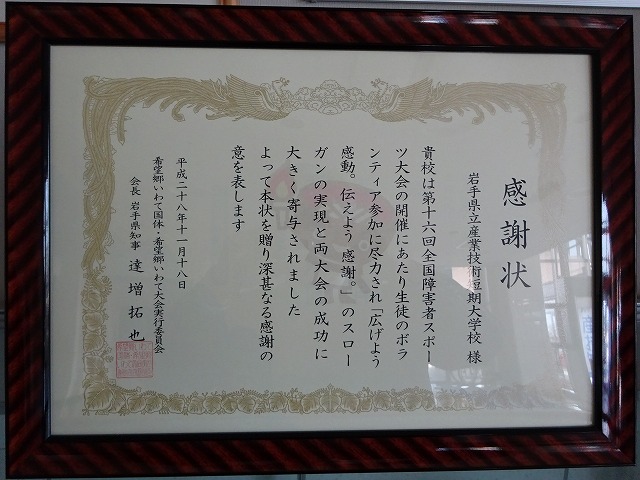 感謝状
岩手県立産業技術短期大学校 様
貴校は第十六回全国障害者スポー
ツ大会の開催にあたり生徒のボラ
ンティア参加に尽力され「広げよう
感動。伝えよう 感謝。」のスロー
ガンの実現と両大会の成功に
大きく寄与されました
よって本状を贈り深甚なる感謝の
意を表します
平成二十八年十一月十八日
希望郷いわて国体・希望郷いわて大会実行委員会
会長 岩手県知事 達増拓也